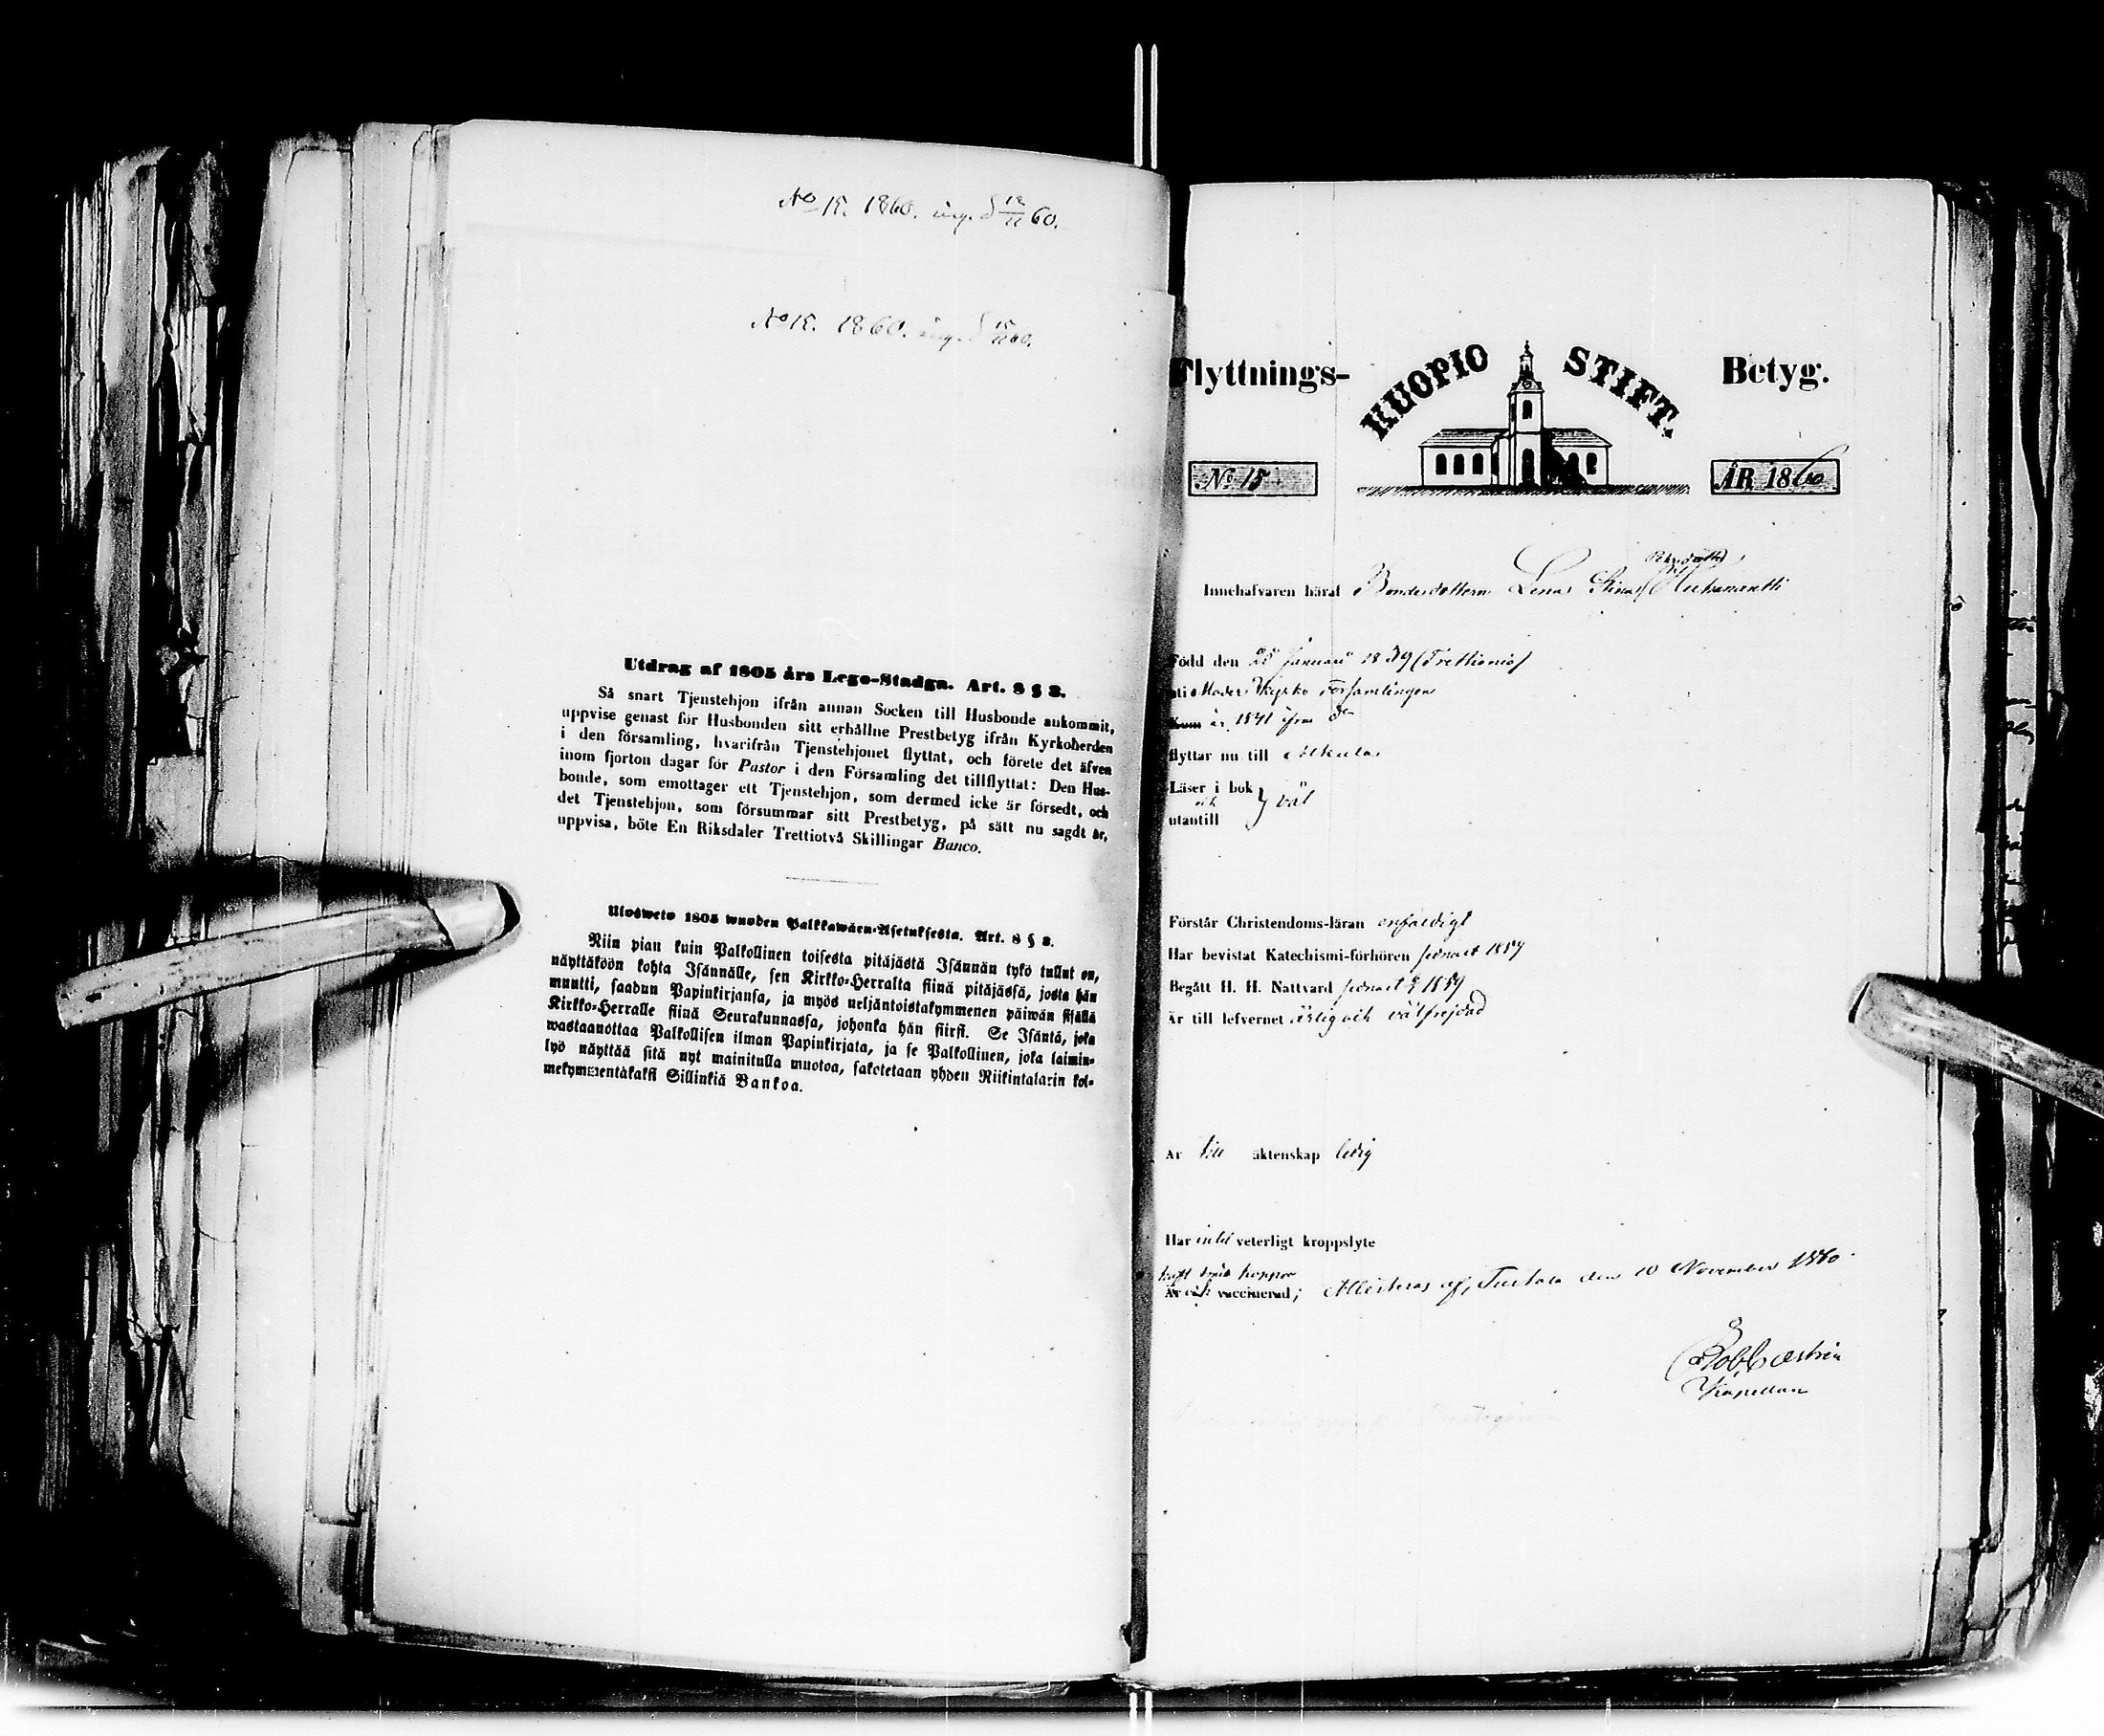 No 15. 1860. ing. d 12/11 60.
No 15. 1860. ing. d 15/11 60.
Utdrag af 1805 års Lego-Stadga. Art. 8 § 3.
Så snart Tjenstehjon ifrån annan Socken till Husbonde ankommit,
uppvise genast för Husbonden sitt erhållne Prestbetyg ifrån Kyrkoherden
i den församling, hvarifrån Tjenstehjonet flyttat, och förete det äfven
inom fjorton dagar för Pastor i den Församling det tillflyttat: Den Hus-
bonde, som emottager ett Tjenstehjon, som dermed icke är försedt, och
det Tjenstehjon, som försummar sitt Prestbetyg, på sätt nu sagdt är,
uppvisa, böte En Riksdaler Trettiotvå Skillingar Banco.
Ulosweto 1805 wuoden Palkkawäen-Asetuksesta. Art. 8 § 3.
Niin pian kuin Palkollinen toisesta pitäjästä Isännän tykö tullut on,
näyttäköön kohta Isännälle, sen Kirkko-Herralta siinä pitäjässä, josta hän
muutti, saadun Papinkirjansa, ja myös neljäntoistakymmenen päiwän sisällä
Kirkko-Herralle siinä Seurakunnassa, johonka hän siirsi. Se Isäntä, joka
wastaanottaa Palkollisen ilman Papinkirjata, ja se Palkollinen, joka laimin-
lyö näyttää sitä nyt mainitulla muotoa, sakotetaan yhden Riikintalarin kol-
mekymmentäkaksi Sillinkiä Bankoa.
Flyttnings- KUOPIO STIFT. Betyg.
No 15 ÅR 1860
Innehafvaren häraf Bondedottern Lena Stina
Född den 25 Januari 1839 (Trettionio)
uti Moder Kyrko församlingen
Kom år 1841 ifrån den
flyttar nu till Alkula
Läser i bok
och } väl
utantill
Förstår Christendoms-läran enfaldigt
Har bevistat Katechismi-förhören sednast 1859
Begått H. H. Nattvard sednast 1859
Är till lefvernet ärlig och välfrejdad
Är till äktenskap ledig
Har intet veterligt kroppslyte
haft koppor
Är och vaccinerad; Attesteras af, Turtola den 10 November 1860
Kapellan